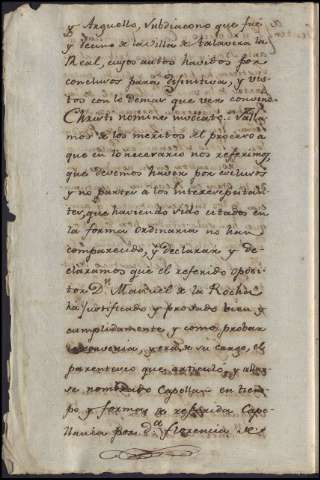 y Arguello, Subdiacono que fue
y vecino de la Villa de Talavera la
Real, cuyos autos havidos por
conclusos para difinitiva, y vis
tos con lo demas que ver convino
Christi nomine invocato. Falla
mos de los meritos del proceso a
que en lo necesario nos referimos,
que devemos haver por exclusos
y no partes a los Interes
tes, que haviendo sido citados en
la forma ordinaria no han
comparecido, y declarar y de
claramos que el referido oposi
tor Dn. Manuel de la Rocha
ha justificado y provado bien y
cumplidamente y como probar
le convenia, y era de su cargo, el
parentesco que articulò, y allar
se nombrado Capellan en tiem
po y forma de la referida Cape
llania por da. Florencia